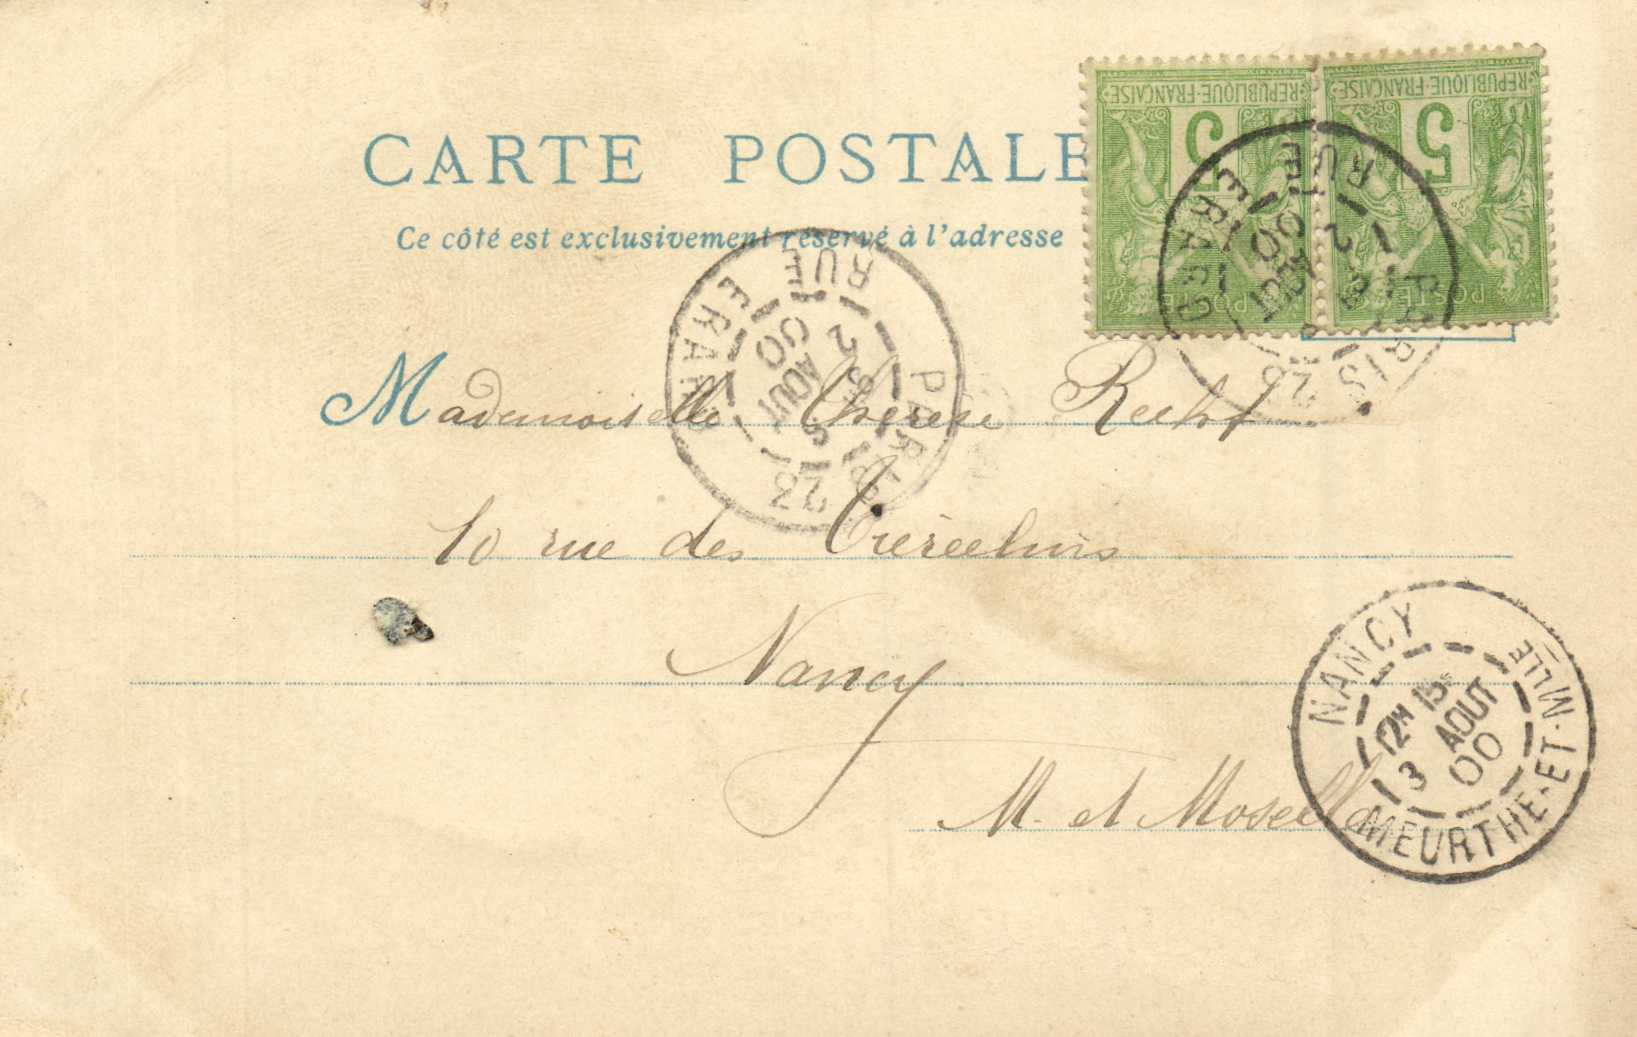 CARTE POSTALE
Ce côté est exclusivement réservé à l'adresse
REPUBLIQUE-FRANÇAISE
5
POSTES
REPUBLIQUE-FRANÇAISE
5
POSTES
PARIS 23
RUE ERARD
2
AOUT
00
PARIS 23
RUE ERARD
2
AOUT
00
Mademoiselle Thérèse
10 rue des Tiercelins
Nancy
M. et Moselle
NANCY
MEURTHE-ET-MLLE
12H 15
3 AOUT
00